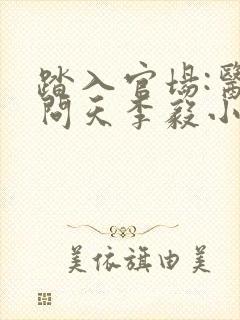 踏入官场:醫
問天李毅小
美依旗由美